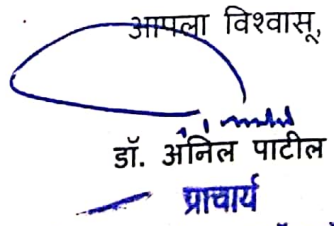 आपला विश्वासू,
डॉ. अनिल पाटील
प्राचार्य